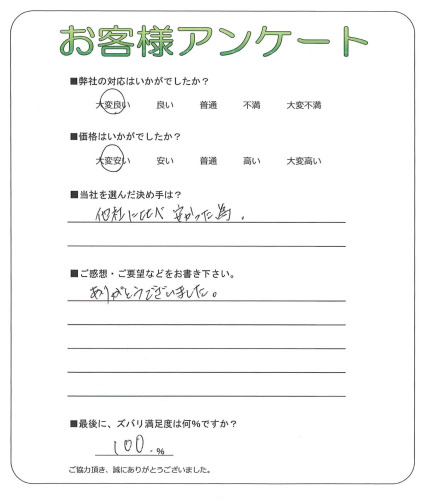 お客様アンケート
■弊社の対応はいかがでしたか?
大変良い 良い 普通 不満 大変不満
■価格はいかがでしたか?
大変安い 安い 普通 高い 大変高い
■当社を選んだ決め手は?
他社に比べ安かった為。
■ご感想・ご要望などをお書き下さい。
ありがとうございました。
■最後に、ズバリ満足度は何%ですか?
100.%
ご協力頂き、誠にありがとうございました。